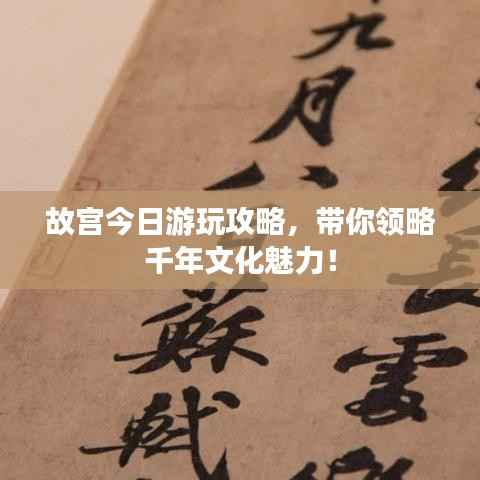 故宫今日游玩攻略，带你领略
千年文化魅力！
九月八日蘇軾
長
雲